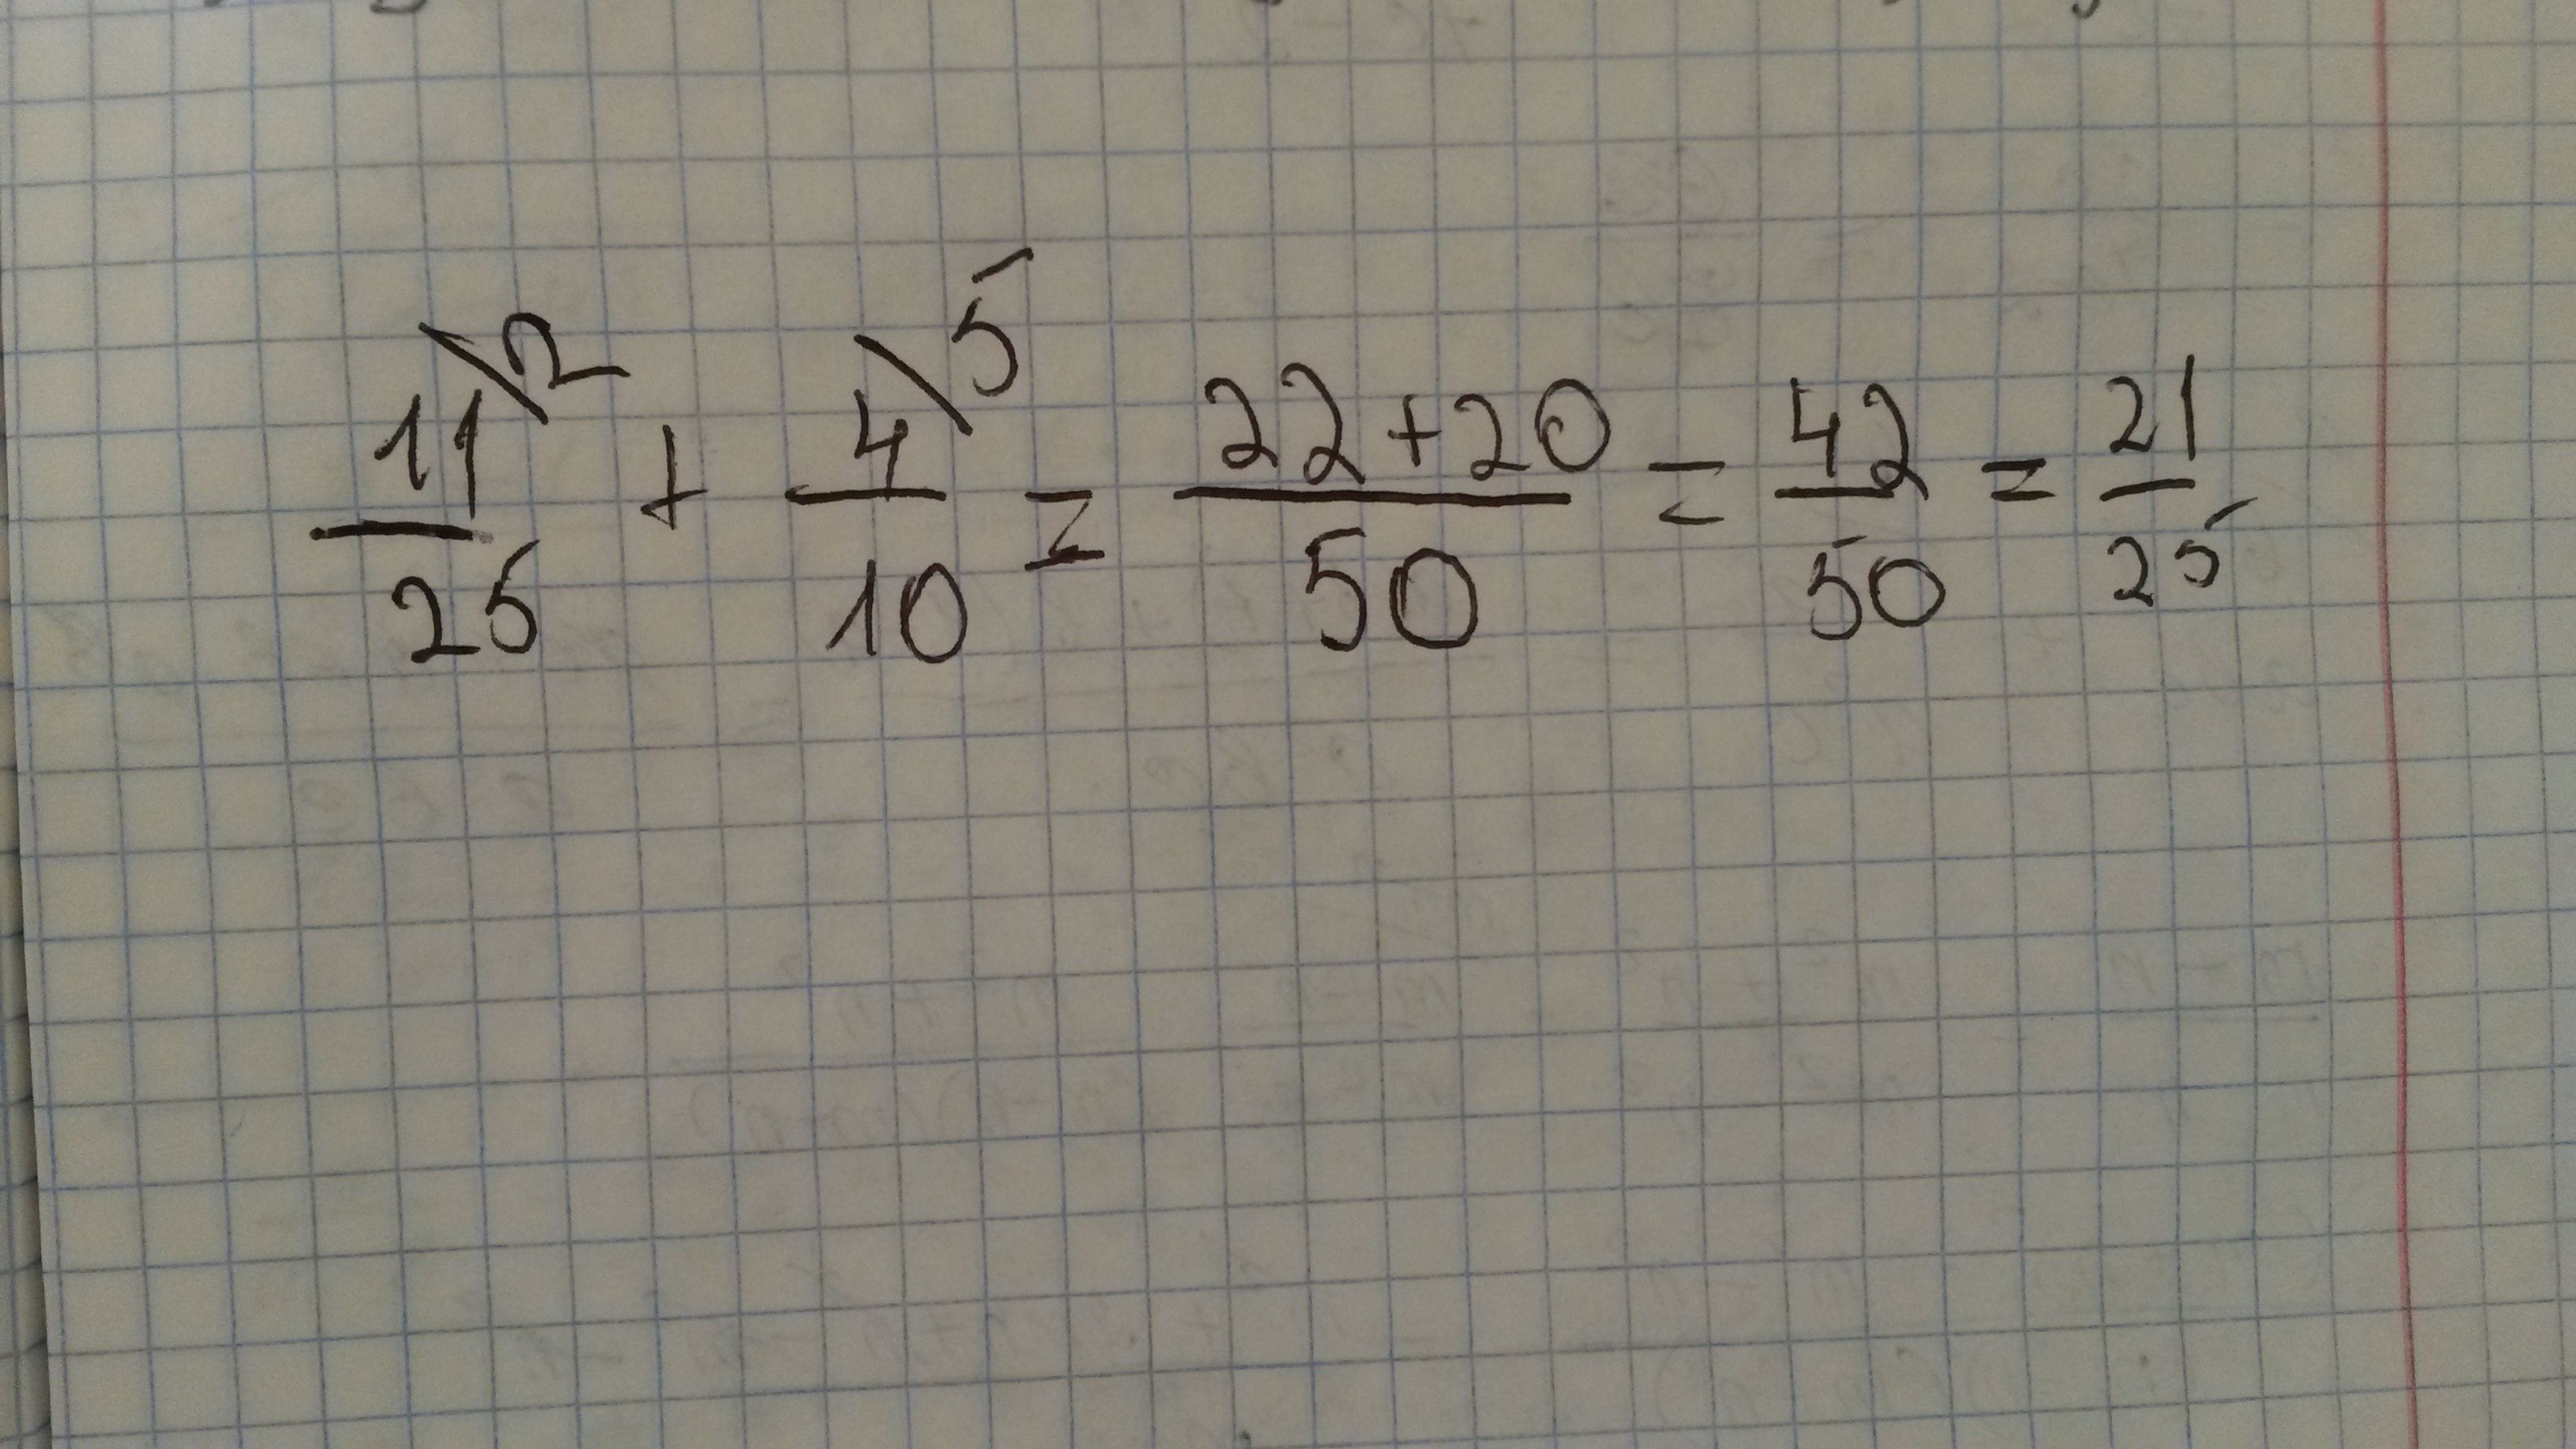 11\2/25 + 4\5/10 = 22+20/50 = 42/50 = 21/25